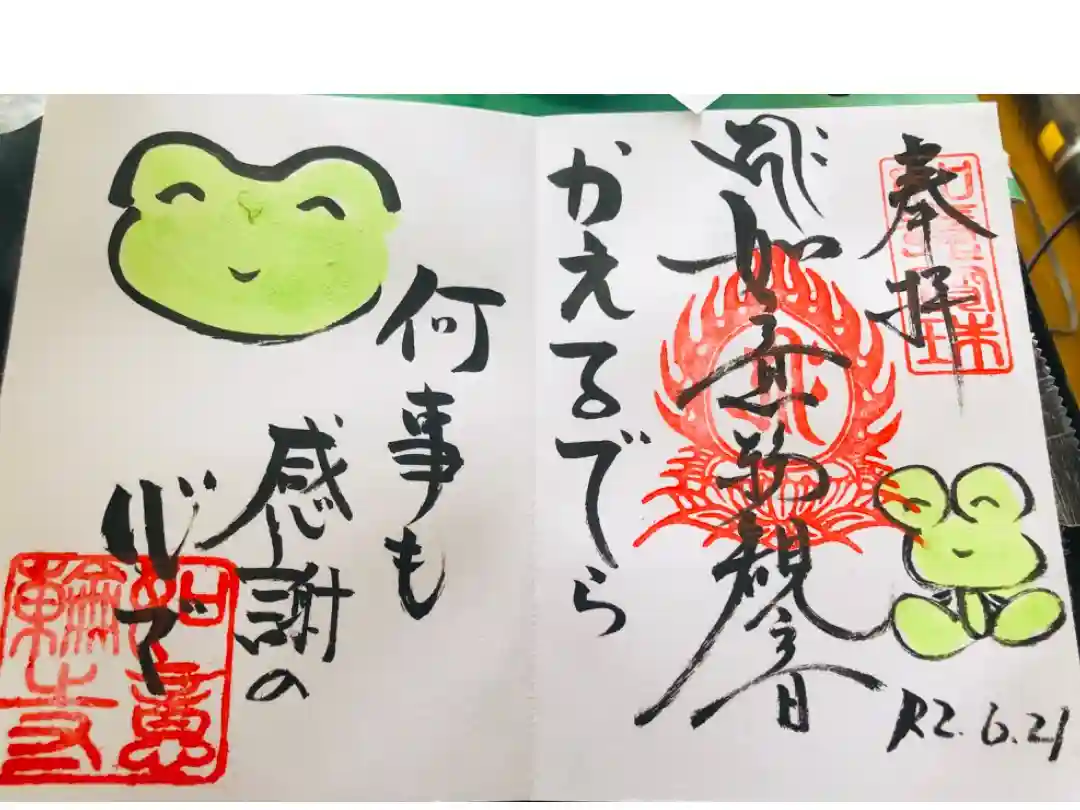 奉拝
R2.6.21
如意輪観音
かえるでら
何事も
感謝の
心で
如意輪寺